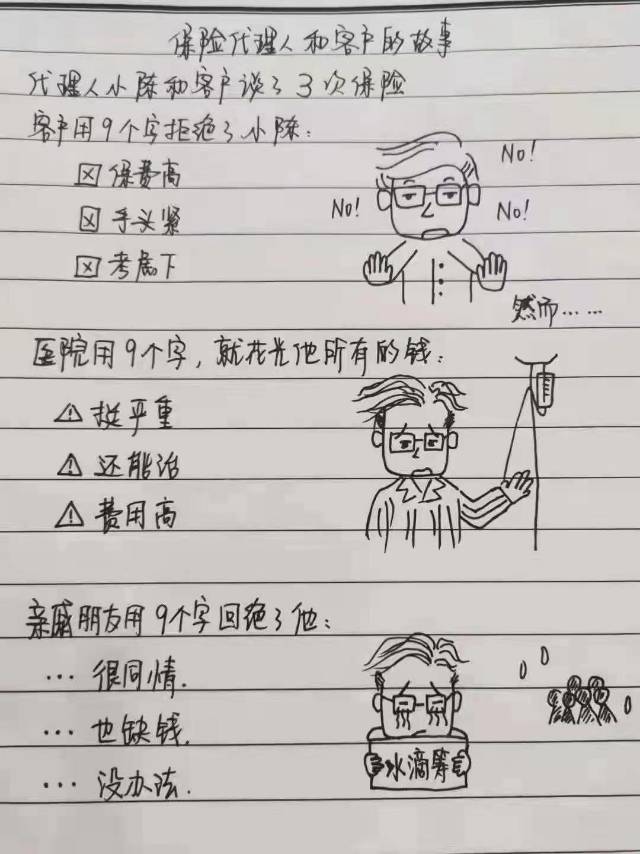 保险代理人和客户的故事
代理人小陈和客户谈了3次保险
客户用9个字拒绝了小陈:
保费高
No!
手头紧
No!
No!
考虑下
然而……
医院用9个字,就花光他所有的钱:
挺严重
还能治
费用高
亲戚朋友用9个字回绝了他:
… 很同情.
… 也缺钱.
… 没办法.
水滴筹